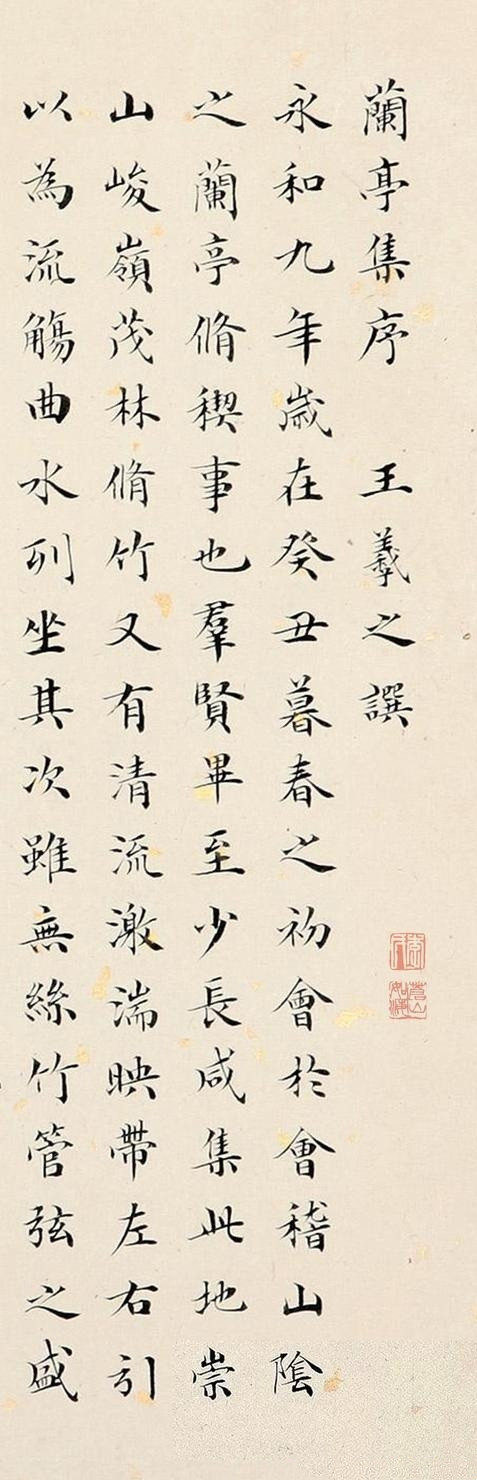 蘭亭集序 王羲之譔
永和九年歲在癸丑暮春之初會於會稽山陰
之蘭亭脩稧事也羣賢畢至少長咸集此地崇
山峻嶺茂林脩竹又有清流激湍映帶左右引
以為流觴曲水列坐其次雖無絲竹管弦之盛